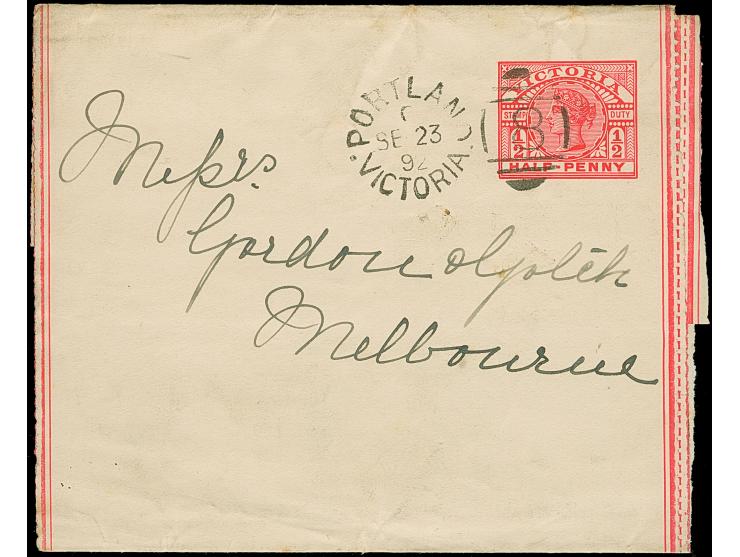 VICTORIA
STAMP DUTY
1/2 1/2
HALF PENNY
PORTLAND
C
SE 23
92
VICTORIA
Messrs
Gordon & Gotch
Melbourne